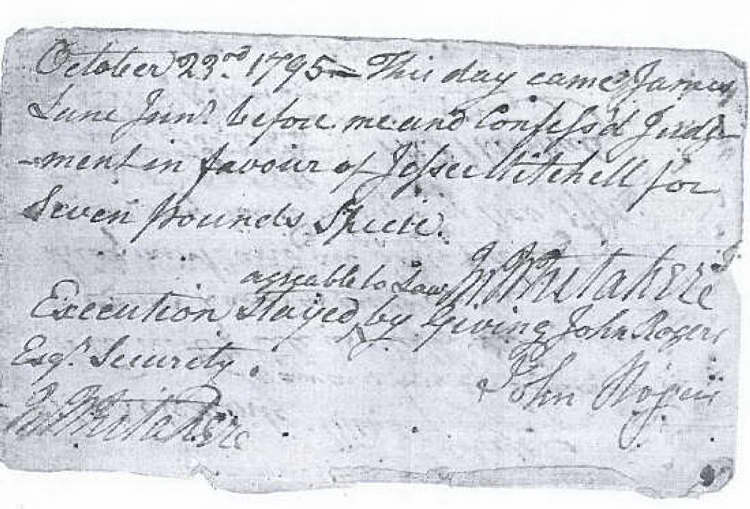 October 23rd. 1795= This day came James
Lane Junr. before me and Confess'd Judg-
-ment in favour of Jesse Mitchell for
Seven pounds Specie.
agreable to Law Jn Whitaker
Execution Stayed by Giving John Rogers
Esqr. Security.
John Rogers
Jn Whitaker